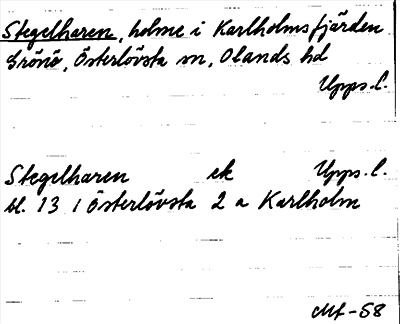 Stegelharen, holme i Karlholmsfjärden
Grönö, Österlövsta sn, Olands hd
Upps. l.
Stegelharen ek Upps. l.
bl. 13 i Österlövsta 2 a Karlholm
Mf-58